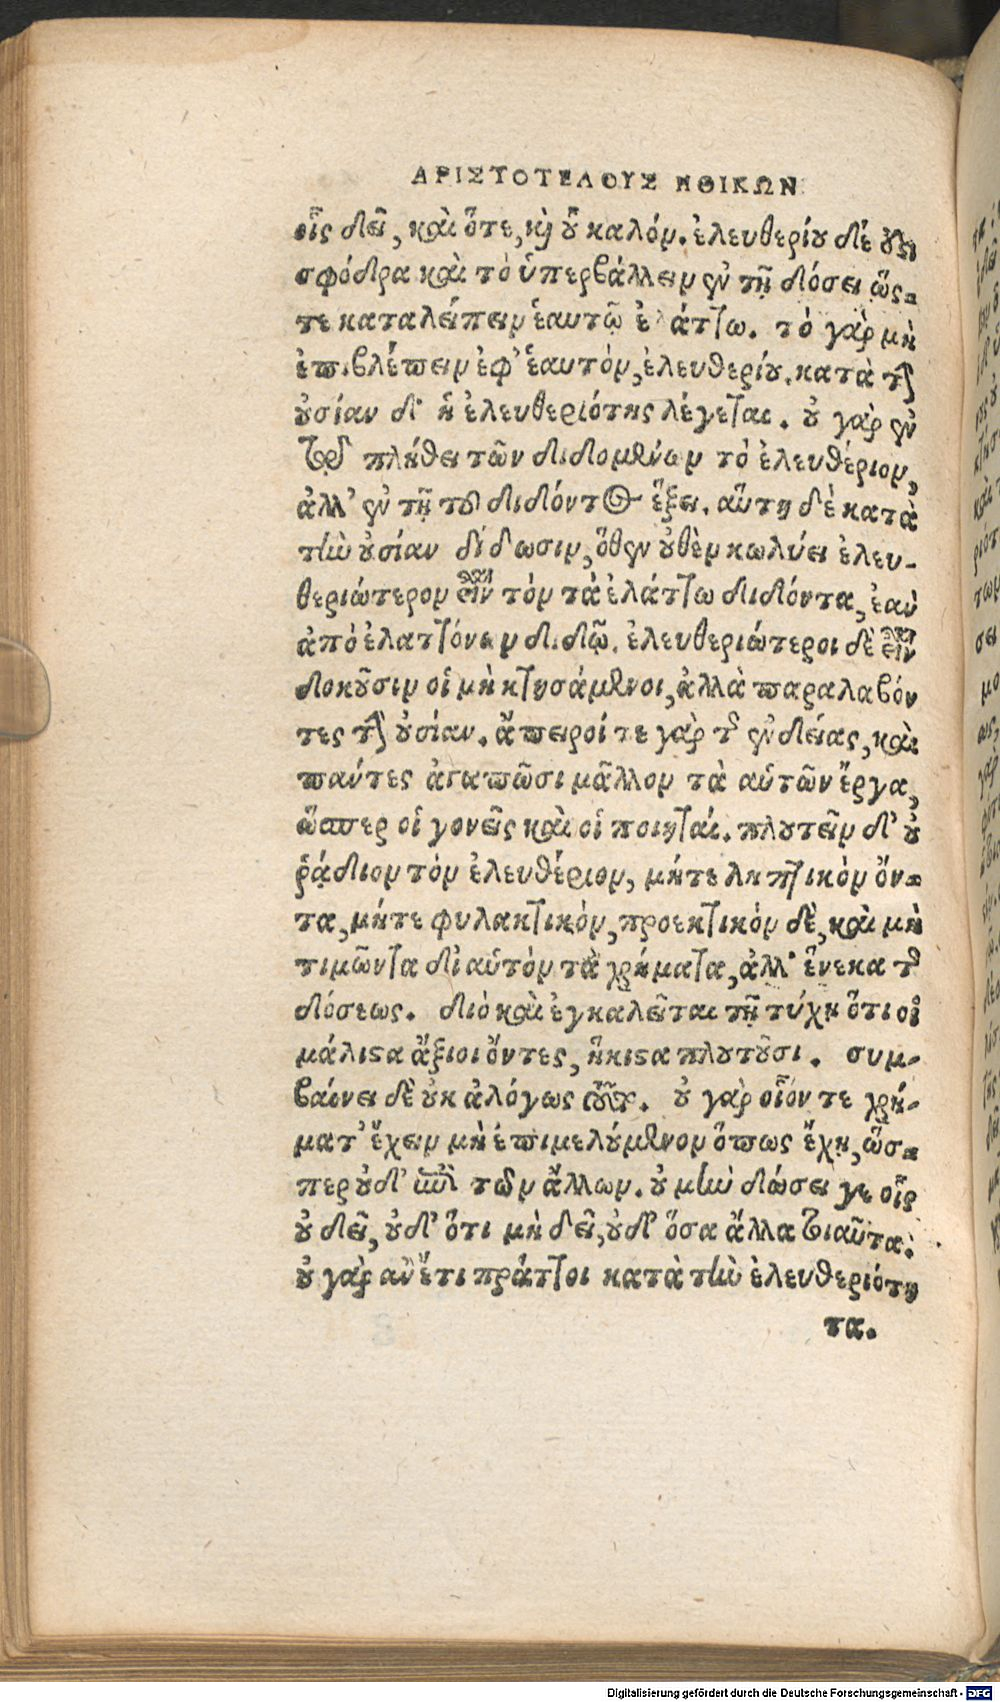 ΑΡΙΣΤΟΤΕΛΟΥΣ ΗΘΙΚΩΝ
οἷς δεῖ, καὶ ὅτε, καὶ οὗ καλόν. ἐλευθερίου δέ ἐστι
σφόδρα καὶ τὸ ὑπερβάλλειν ἐν τῇ δόσει ὥς-
τε καταλείπειν ἑαυτῷ ἐλάττω. τὸ γὰρ μὴ
ἐπιβλέπειν ἐφ’ ἑαυτὸν, ἐλευθερίου. κατὰ τὴν
οὐσίαν δ’ ἡ ἐλευθεριότης λέγεται. οὐ γὰρ ἐν
τῷ πλήθει τῶν διδομένων τὸ ἐλευθέριον,
ἀλλ’ ἐν τῇ τοῦ διδόντος ἕξει. αὕτη δὲ κατὰ
τὴν οὐσίαν δίδωσιν, ὅθεν οὐθὲν κωλύει ἐλευ-
θεριώτερον εἶναι τὸν τὰ ἐλάττω διδόντα, ἐὰν
ἀπὸ ἐλαττόνων διδῷ. ἐλευθεριώτεροι δὲ εἶναι
δοκοῦσιν οἱ μὴ κτησάμενοι, ἀλλὰ παραλαβόν
τες τὴν οὐσίαν. ἄπειροί τε γὰρ τῆς ἐνδείας, καὶ
πάντες ἀγαπῶσι μᾶλλον τὰ αὑτῶν ἔργα,
ὥσπερ οἱ γονεῖς καὶ οἱ ποιηταί. πλουτεῖν δ’ οὐ
ῥᾴδιον τὸν ἐλευθέριον, μήτε ληπτικὸν ὄν-
τα, μήτε φυλακτικὸν, προεκτικὸν δὲ, καὶ μὴ
τιμῶντα δι αὑτὸν τὰ χρήματα, ἀλλ’ ἕνεκα τῆς
δόσεως. διὸ καὶ ἐγκαλεῖται τῇ τύχῃ ὅτι οἱ
μάλιστα ἄξιοι ὄντες, ἥκιστα πλουτοῦσι. συμ-
βαίνει δὲ οὐκ ἀλόγως τοῦτο. οὐ γὰρ οἷόν τε χρή-
ματ’ ἔχειν μὴ ἐπιμελούμενον ὅπως ἔχῃ, ὥσ-
περ οὐδ’ ἐπὶ τῶν ἄλλων. οὐ μὴν δώσει γε οἷς
οὐ δεῖ, οὐδ’ ὅτι μὴ δεῖ, οὐδ’ ὅσα ἄλλα τοιαῦτα.
οὐ γὰρ ἂν ἔτι πράττοι κατὰ τὴν ἐλευθεριότη
τα.
Digitalisierung gefördert durch die Deutsche Forschungsgemeinschaft - DFG